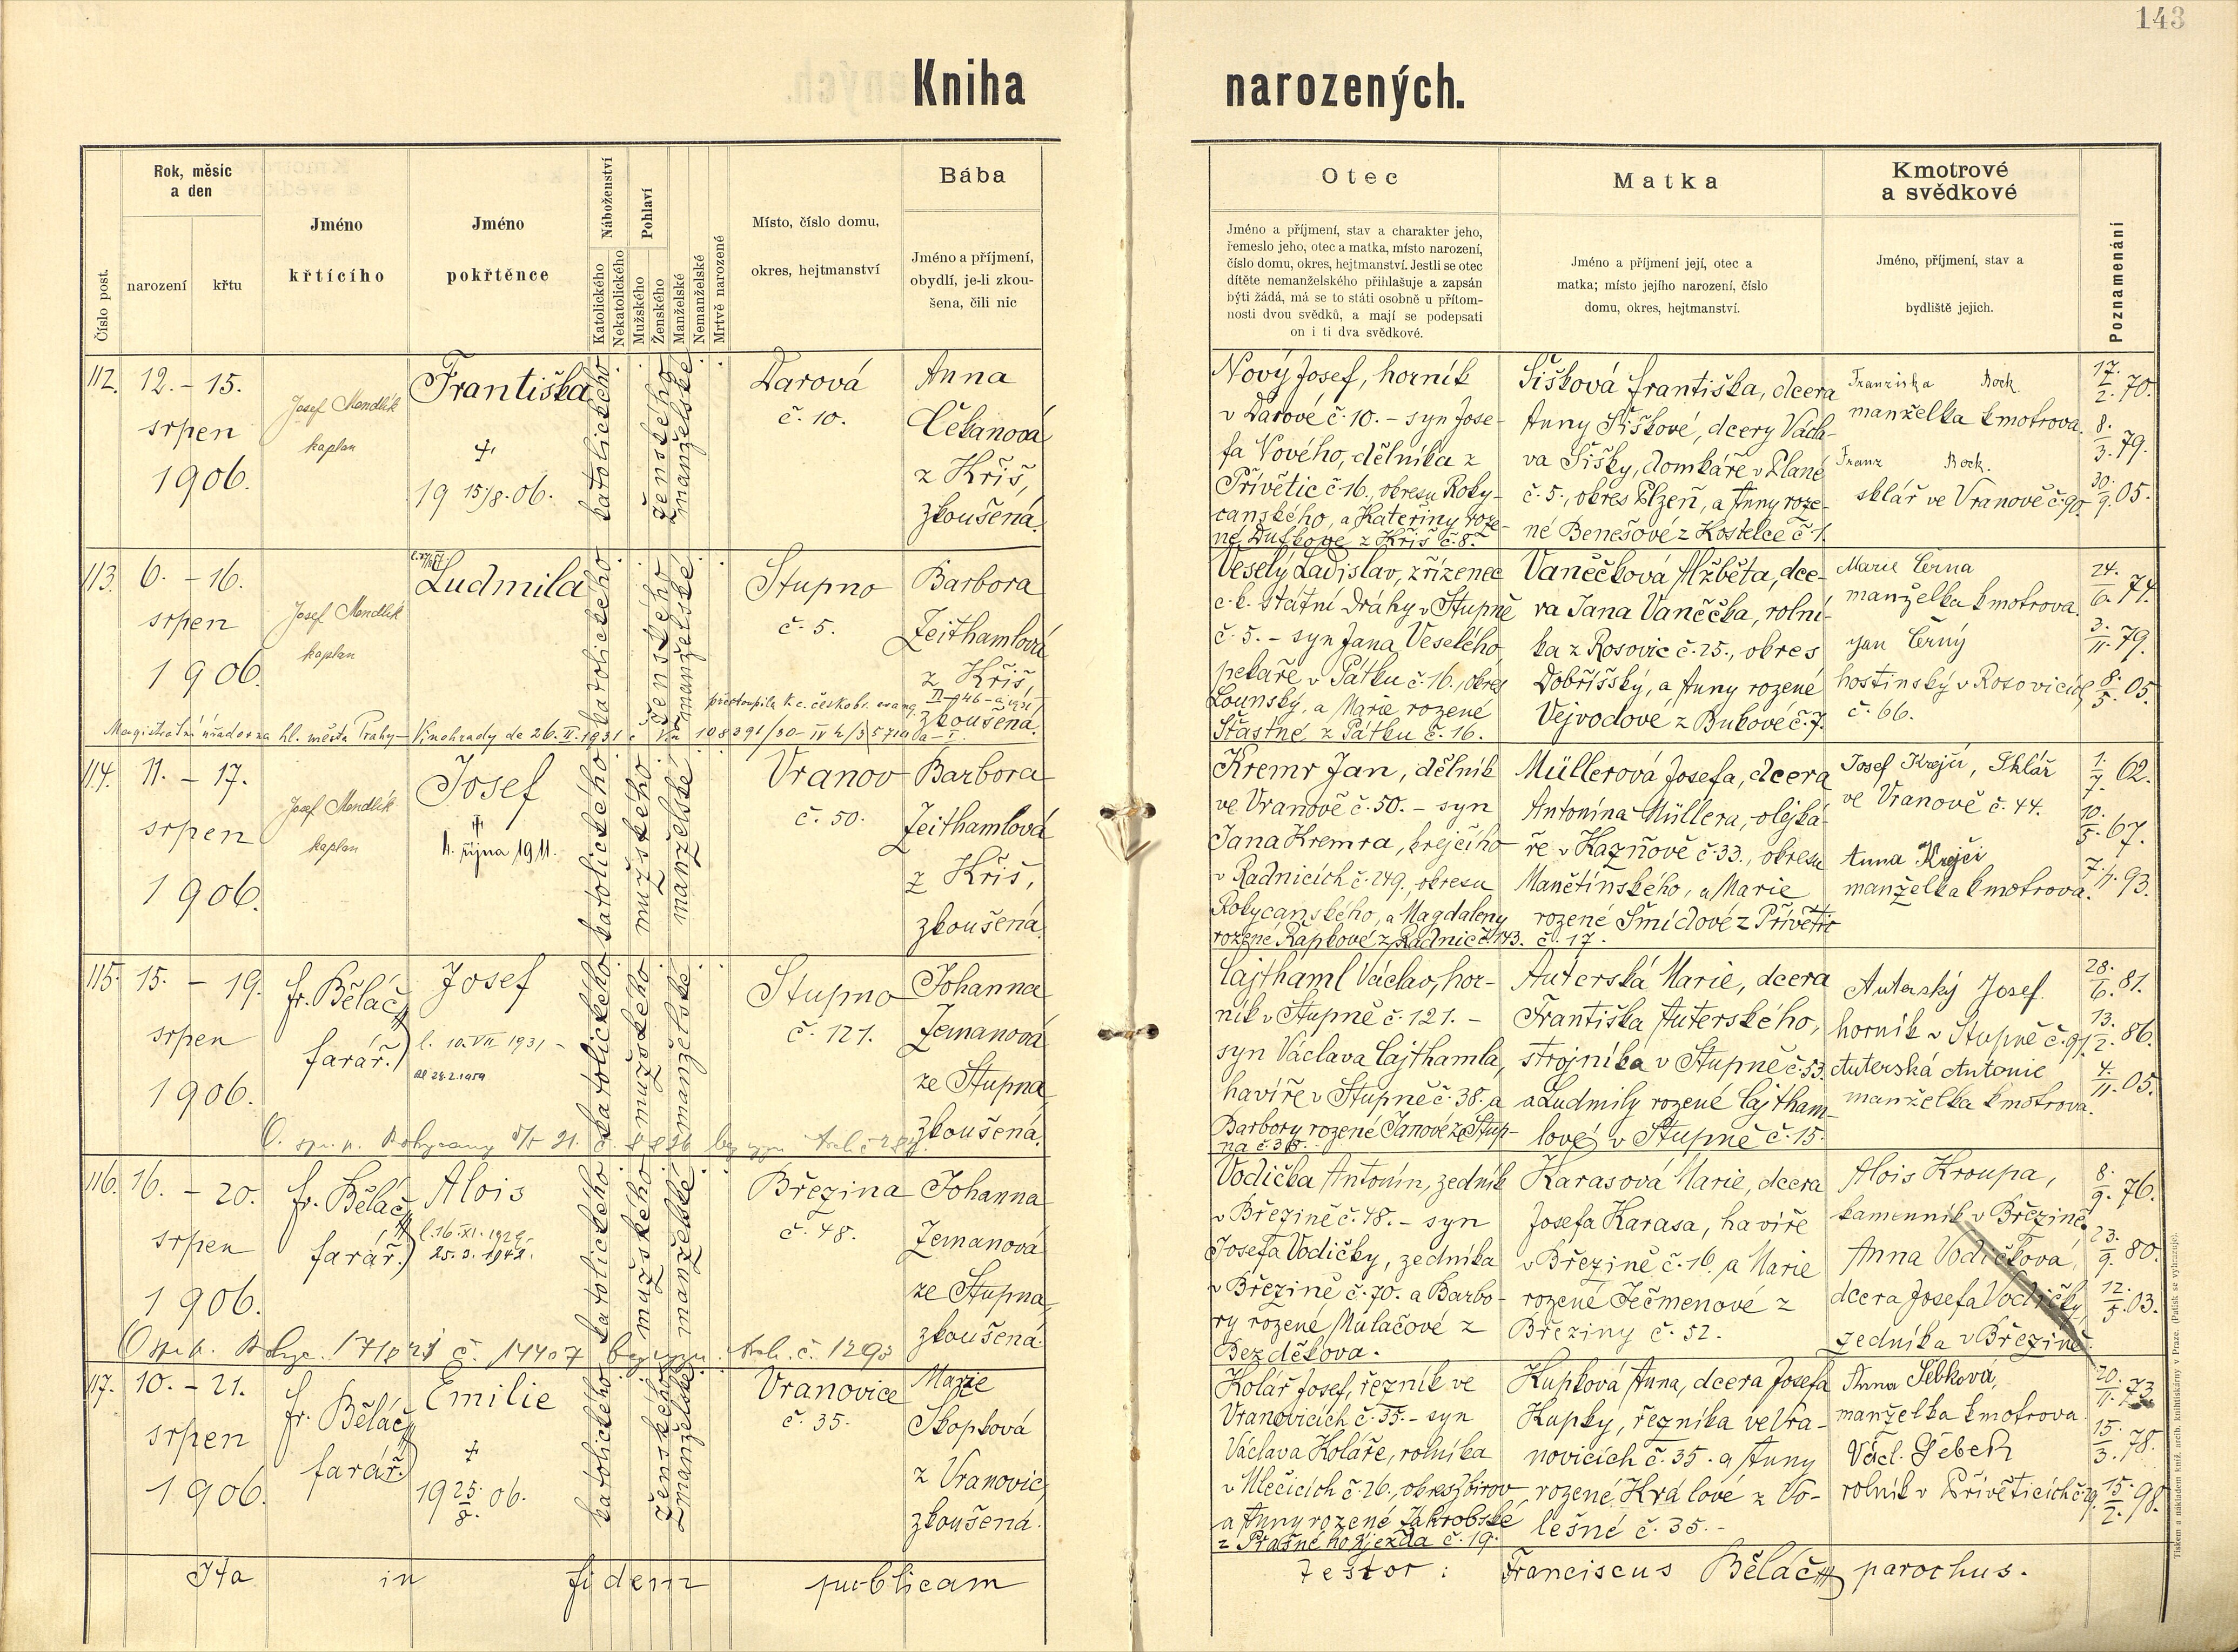 143
Kniha narozených.
Číslo post.
Rok, měsíc
a den
narození
křtu
Jméno
křtícího
Jméno
pokřtěnce
Náboženství
Katolického
Nekatolického
Pohlaví
Mužského
Ženského
Manželské
Nemanželské
Mrtvě narozené
Místo, číslo domu,
okres, hejtmanství
Bába
Jméno a příjmení,
obydlí, je-li zkou-
šena, čili nic
Otec
Jméno a příjmení, stav a charakter jeho,
řemeslo jeho, otec a matka, místo narození,
číslo domu, okres, hejtmanství. Jestli se otec
dítěte nemanželského přihlašuje a zapsán
býti žádá, má se to státi osobně u přítom-
nosti dvou svědků, a mají se podepsati
on i ti dva svědkové.
Matka
Jméno a příjmení její, otec a
matka; místo jejího narození, číslo
domu, okres, hejtmanství.
Kmotrové
a svědkové
Jméno, příjmení, stav a
bydliště jejich.
Poznamenání
112.
12. – 15.
srpen
1906.
Josef Mendlík
kaplan
Františka
†
19 15/8. 06.
katolického
ženského
manželské
Darová
č. 10.
Anna
Čekanová
z Kříš,
zkoušená.
Nový Josef, horník
v Darové č. 10. – syn Jose-
fa Nového, dělníka z
Přívětic č. 16., okresu Roky-
canského, a Kateřiny roze-
né Dufkové z Kříš č. 8.
Šišková Františka, dcera
Anny Šiškové, dcery Václa-
va Šišky, domkáře v Plané
č. 5., okres Plzeň, a Anny roze-
né Benešové z Kostelce č. 1.
Franziska Bock.
manželka kmotrova.
Franz Bock.
sklář ve Vranově č. 90.
17./2. 70.
8./3. 79.
30./9. 05.
113.
6. – 16.
srpen
1906.
Josef Mendlík
kaplan
Ludmila
katolického
ženského
manželské
Stupno
č. 5.
Barbora
Zeithamlová
z Kříš,
zkoušená.
přestoupila k c. českobr. evang.
Magistrátní úřadovna hl. města Prahy – Vinohrady de 26. II. 1931
Veselý Ladislav, zřízenec
c. k. státní dráhy v Stupně
č. 5. – syn Jana Veselého,
pekaře v Pátku č. 16., okres
Lounský, a Marie rozené
Šťastné z Pátku č. 16.
Vaněčková Alžběta, dce-
ra Jana Vaněčka, rolní-
ka z Rosovic č. 25., okres
Dobříšský, a Anny rozené
Vejvodové z Bukové č. 7.
Marie Černá
manželka kmotrova.
Jan Černý
hostinský v Rosovicích
č. 66.
24./6. 74.
3./11. 79.
8./5. 05.
114.
11. – 17.
srpen
1906.
Josef Mendlík
kaplan
Josef
†
11. října 1911.
katolického
mužského
manželské
Vranov
č. 50.
Barbora
Zeithamlová
z Kříš,
zkoušená.
Kremr Jan, dělník
ve Vranově č. 50. – syn
Jana Kremra, krejčího
v Radnicích č. 249., okresu
Rokycanského, a Magdaleny
rozené Řapkové z Radnic č. 143.
Müllerová Josefa, dcera
Antonína Müllera, olejká-
ře v Kazňově č. 33., okresu
Manětínského, a Marie
rozené Šmídové z Přívětic
č. 17.
Josef Krejčí, Sklář
ve Vranově č. 44.
Anna Krejčí
manželka kmotrova.
1./7. 62.
10./5. 67.
7./4. 93.
115.
15. – 19.
srpen
1906.
fr. Běláč
farář.
Josef
l. 10. VII 1931 –
28.2.1959
katolického
mužského
manželské
Stupno
č. 121.
Johanna
Zemanová
ze Stupna,
zkoušená.
Lajthaml Václav, hor-
ník v Stupně č. 121. –
syn Václava Lajthamla,
havíře v Stupně č. 38. a
Barbory rozené Janové ze Stup-
na č. 38.
Auterská Marie, dcera
Františka Auterského,
strojníka v Stupně č. 53.
a Ludmily rozené Lajtham-
lové v Stupně č. 15.
Auterský Josef
horník v Stupně č. 91.
Auterská Antonie
manželka kmotrova.
28./6. 81.
13./2. 86.
4./11. 05.
116.
16. – 20.
srpen
1906.
fr. Běláč
farář.
Alois
l. 16. XI. 1929.
25. 3. 1942.
katolického
mužského
manželské
Březina
č. 48.
Johanna
Zemanová
ze Stupna,
zkoušená.
Vodička Antonín, zedník
v Březině č. 48. – syn
Josefa Vodičky, zedníka
v Březině č. 70. a Barbo-
ry rozené Mulačové z
Bezděkova.
Karasová Marie, dcera
Josefa Karasa, havíře
v Březině č. 16. a Marie
rozené Ječmenové z
Březiny č. 52.
Alois Kroupa,
kamenník v Březině,
Anna Vodičková,
dcera Josefa Vodičky,
zedníka v Březině.
8/9. 76.
23./9. 80.
12./5. 03.
117.
10. – 21.
srpen
1906.
fr. Běláč
farář.
Emilie
†
19 25./8. 06.
katolického
ženského
manželské
Vranovice
č. 35.
Marie
Skopková
z Vranovic,
zkoušená.
Kolář Josef, řezník ve
Vranovicích č. 35. – syn
Václava Koláře, rolníka
v Mlečicích č. 26., okres Zbirov
a Anny rozené Jakrobské
z Prašného Újezda č. 19.
Kupková Anna, dcera Josefa
Kupky, řezníka ve Vra-
novicích č. 35. a Anny
rozené Králové z Vo-
lešné č. 35. –
Anna Šebková,
manželka kmotrova
Václ. Šebek
rolník v Příveticích č. 29.
20./11. 73.
15./3. 78.
15./2. 98.
Ita in fidem publicam
Testor: Franciscus Běláč parochus.